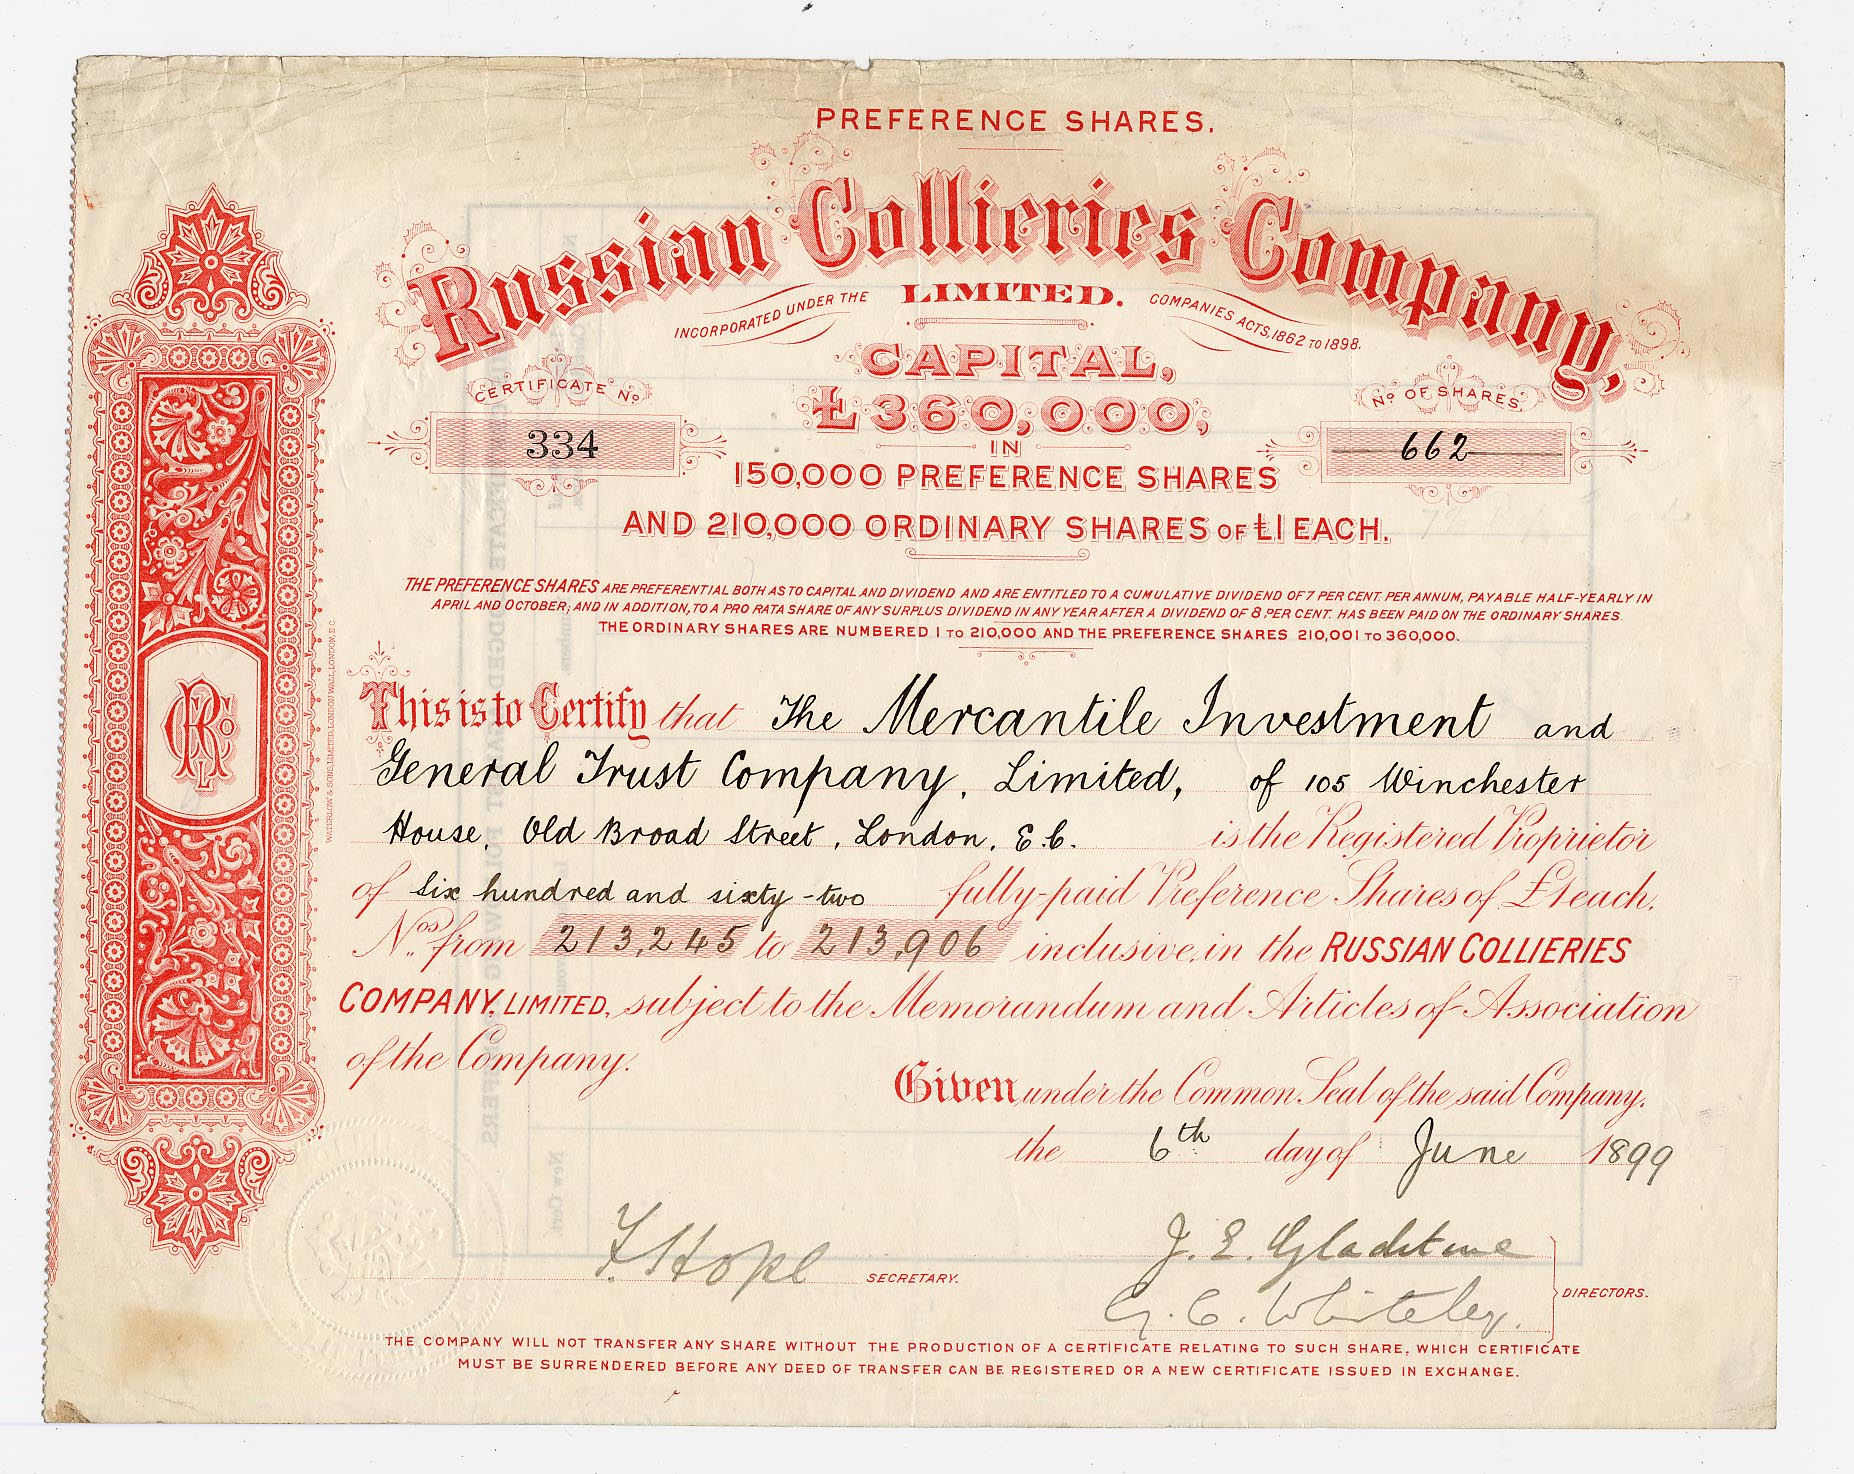 PREFERENCE SHARES.
Russian Collieries Company,
INCORPORATED UNDER THE LIMITED. COMPANIES ACTS, 1862 TO 1898.
CAPITAL,
£360,000,
CERTIFICATE No
334
No OF SHARES,
662
IN
150,000 PREFERENCE SHARES
AND 210,000 ORDINARY SHARES OF £1 EACH.
THE PREFERENCE SHARES ARE PREFERENTIAL BOTH AS TO CAPITAL AND DIVIDEND AND ARE ENTITLED TO A CUMULATIVE DIVIDEND OF 7 PER CENT. PER ANNUM, PAYABLE HALF-YEARLY IN
APRIL AND OCTOBER; AND IN ADDITION, TO A PRO RATA SHARE OF ANY SURPLUS DIVIDEND IN ANY YEAR AFTER A DIVIDEND OF 8 PER CENT. HAS BEEN PAID ON THE ORDINARY SHARES.
THE ORDINARY SHARES ARE NUMBERED 1 TO 210,000 AND THE PREFERENCE SHARES 210,001 TO 360,000.
This is to Certify that The Mercantile Investment and
General Trust Company, Limited, of 105 Winchester
House, Old Broad Street, London, E.C. is the Registered Proprietor
of Six hundred and sixty-two fully-paid Preference Shares of £1 each,
Nos. from 213,245 to 213,906 inclusive, in the RUSSIAN COLLIERIES
COMPANY, LIMITED, subject to the Memorandum and Articles of Association
of the Company.
Given under the Common Seal of the said Company,
the 6th day of June 1899
F. Hope SECRETARY.
J. E. Gladstone
G. C. Whiteley.
DIRECTORS.
THE COMPANY WILL NOT TRANSFER ANY SHARE WITHOUT THE PRODUCTION OF A CERTIFICATE RELATING TO SUCH SHARE, WHICH CERTIFICATE
MUST BE SURRENDERED BEFORE ANY DEED OF TRANSFER CAN BE REGISTERED OR A NEW CERTIFICATE ISSUED IN EXCHANGE.
RCCo
L
WATERLOW & SONS, LIMITED, LONDON WALL, LONDON, E.C.